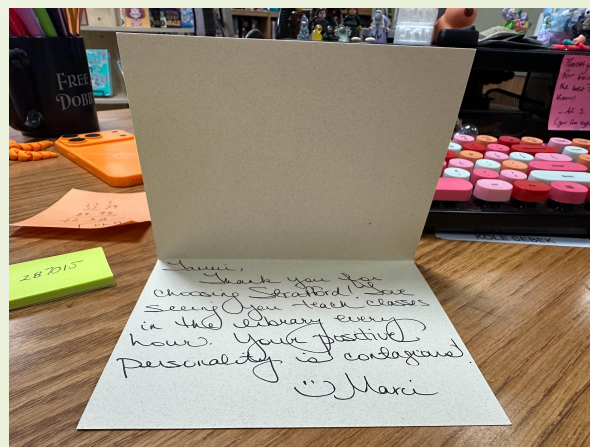 FREE
DOBBY
Thank you
for being
the best
287015
Thank you for
choosing Strafford! I love
seeing you teach classes
in the library every
hour. Your positive
personality is contagious!
Marci